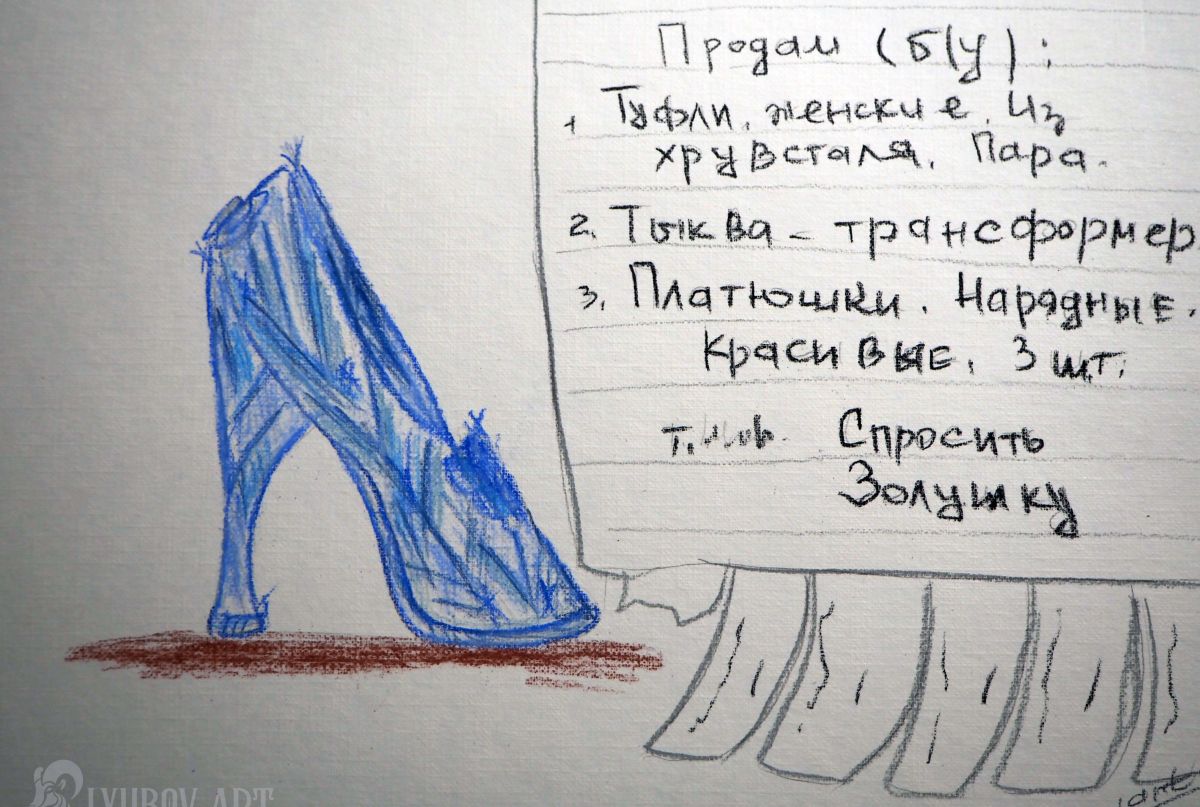 Продам (б/у):
1 Туфли. женские. Из
хрувсталя. Пара.
2. Тыква - трансформер
3. Платюшки. Нарядные.
Красивые. 3 шт.
т. Спросить
Золушку
LYUBOV ART